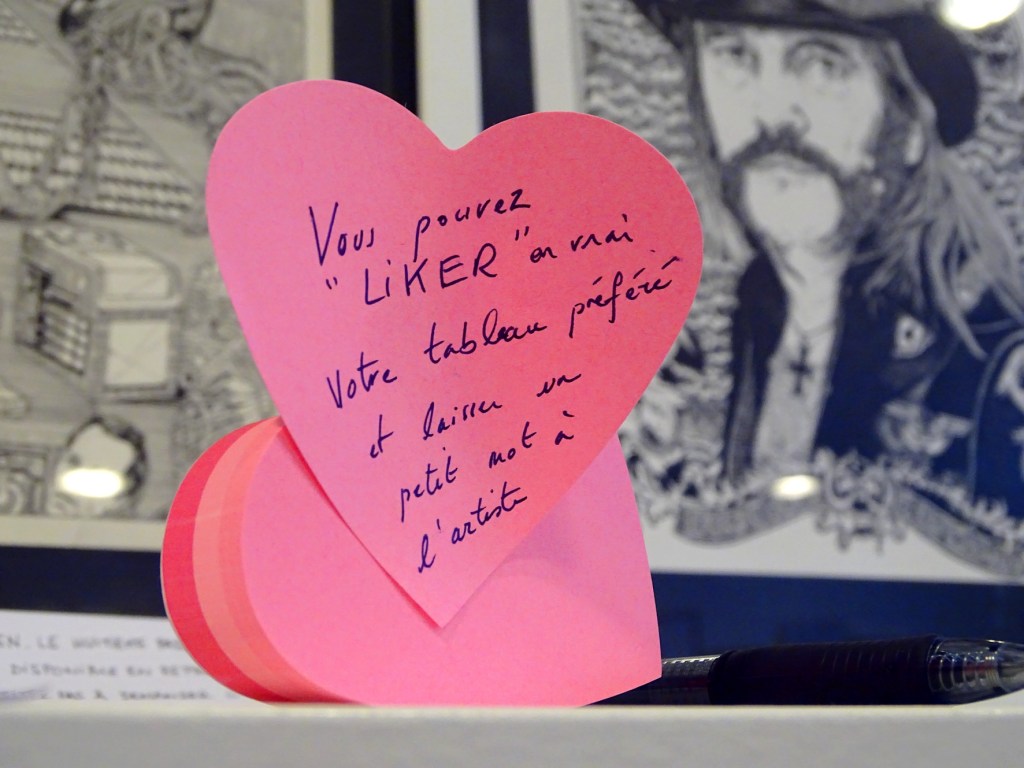 Vous pouvez
"LiKER" en vrai
Votre tableau préféré
et laisser un
petit mot à
l'artiste
EN. LE HUITIÈME
DISPONIBLE EN
PAS À DEMANDER